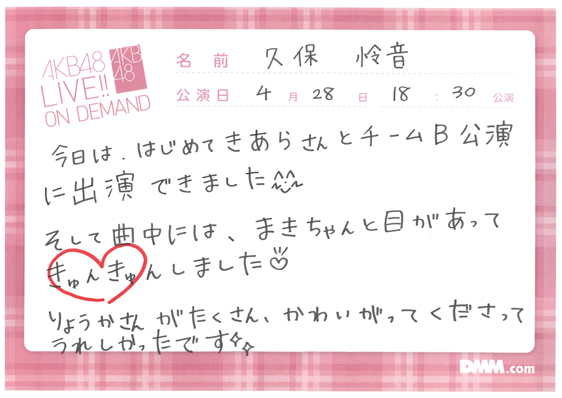 AKB48
LIVE!!
ON DEMAND
AKB
48
名 前 久保 怜音
公演日 4 月 28 日 18 : 30 公演
今日は、はじめてきあらさんとチームB公演
に出演できました
そして曲中には、まきちゃんと目があって
きゅんきゅんしました
りょうかさんがたくさん、かわいがってくださって
うれしかったです
DMM.com